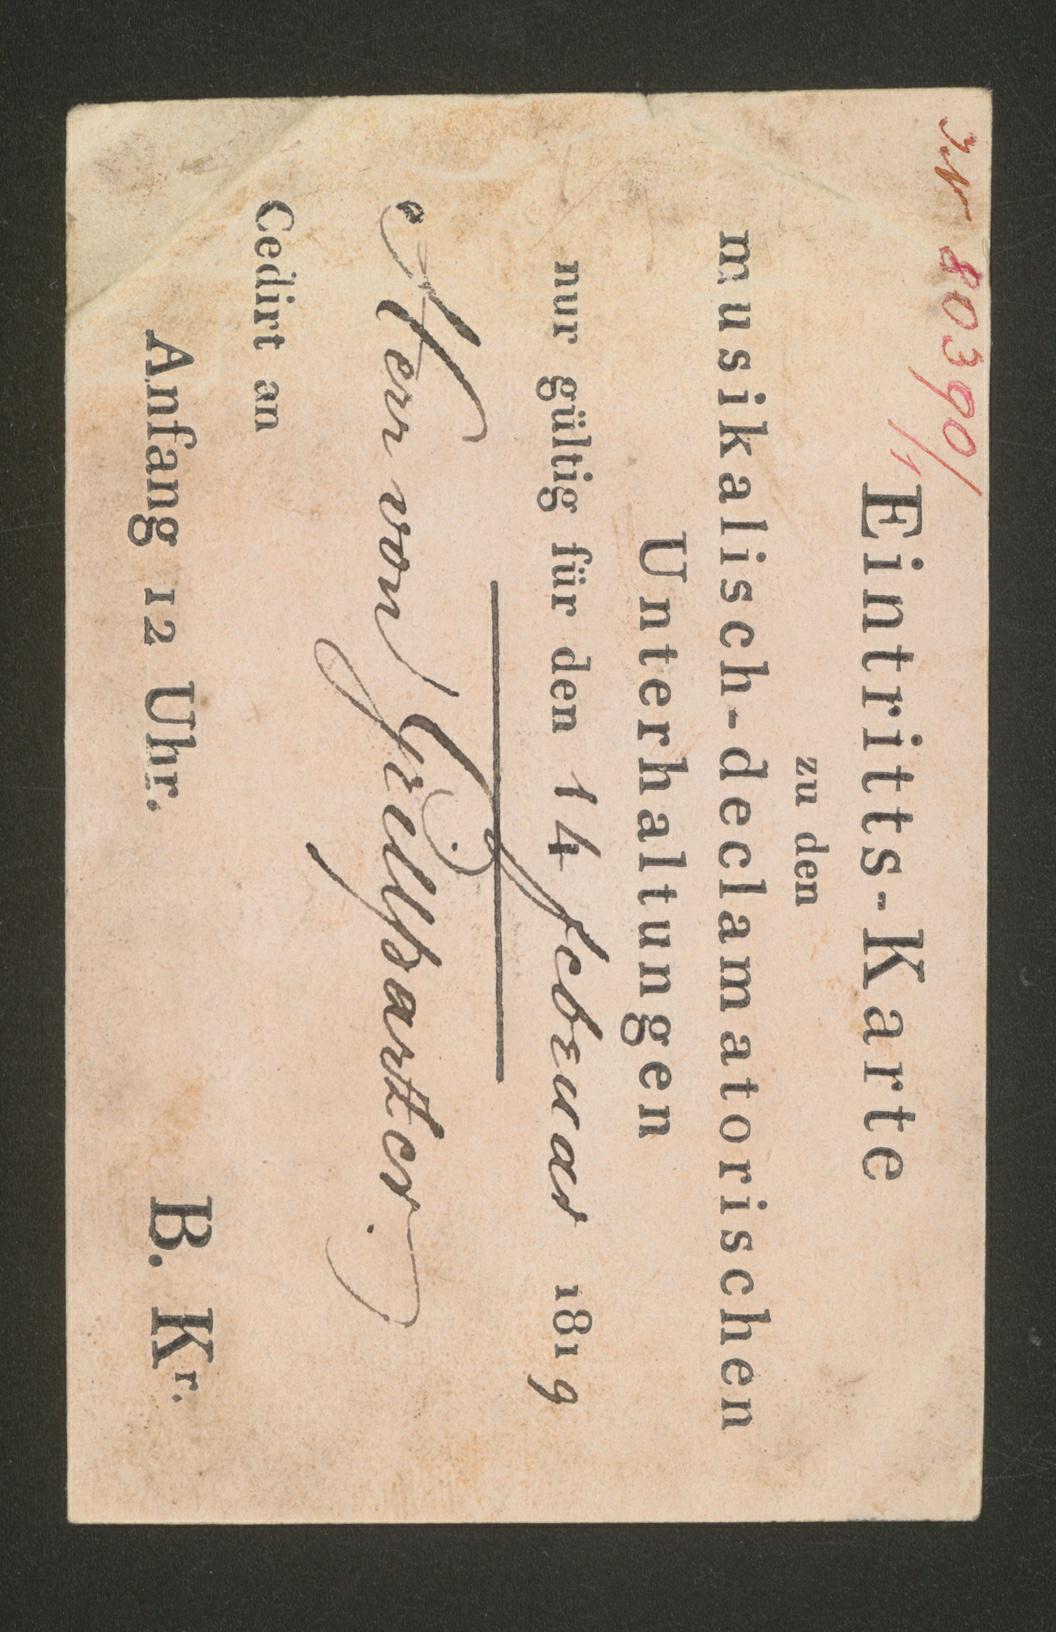 IN 80390/1
Eintritts-Karte
zu den
musikalisch-declamatorischen
Unterhaltungen
nur gültig für den 14 februar 1819
Herr von Grillparzer.
Cedirt an
Anfang 12 Uhr. B. Kr.